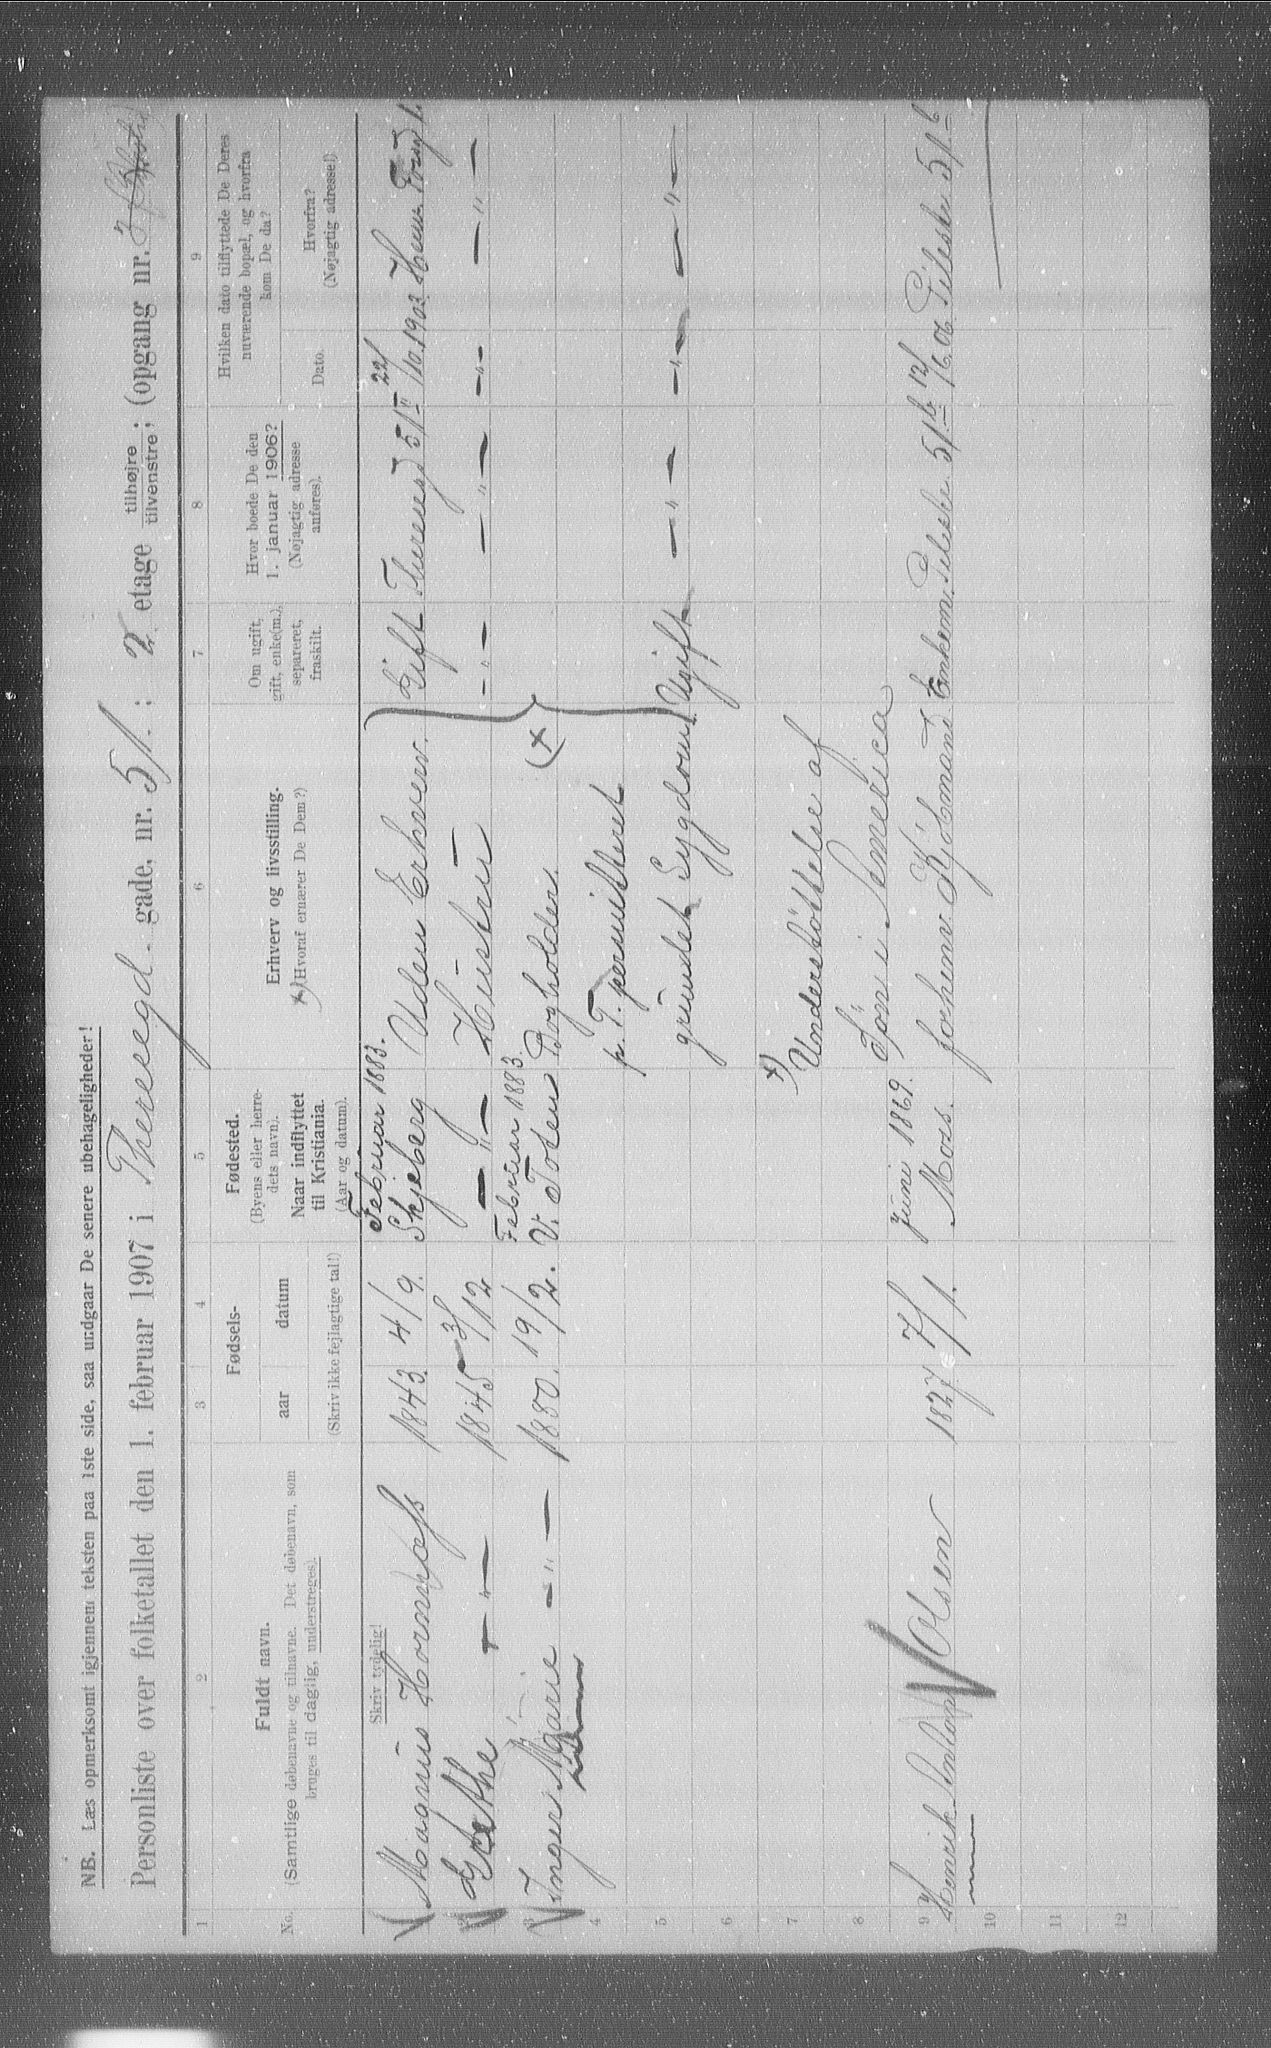 NB. Læs opmerksomt igjennem teksten paa 1ste side, saa undgaar De senere ubehageligheder!
Personliste over folketallet den 1. februar 1907 i Theresegd. gade, nr. 51. : 2 etage tilhøjre ; tilvenstre ; (opgang nr. 3
1 2 3 4 5 6 7 8 9
No.
Fuldt navn.
(Samtlige døbenavne og tilnavne. Det døbenavn, som
bruges til daglig, understreges).
Skriv tydelig!
Fødsels-
aar datum
(Skriv ikke fejlagtige tal!)
Fødested.
(Byens eller herre-
dets navn).
Naar indflyttet
til Kristiania.
(Aar og datum).
Erhverv og livsstilling.
x) (Hvoraf ernærer De Dem?)
Om ugift,
gift, enke(m.),
separeret,
fraskilt.
Hvor boede De den
1. januar 1906?
(Nøjagtig adresse
anføres).
Hvilken dato tilflyttede De Deres
nuværende bopæl, og hvorfra
kom De da?
Dato.
Hvorfra?
(Nøjagtig adresse!)
Februar 1883.
Magnus 1843. 4/9. Skjeberg Uden Erhverv. Gift Theresegd 51 II 22/10.1903.
Grethe — " — 1845 3/12 — " — Hustru — " — — " — — " — — " —
Februar 1883.
3 Inger Marie — " — 1880. 19/2. V. Toten Bogholder. (x)
4 p. T. permitteret
5 grundet Sygdom. Ugift — " — — " — — " —
6
7 x) Understøttelse af
8 Søn i Amerika
Juni 1869.
9 Henrik Olsen 1827 7/1. Moss. forhenv. Kjøbmand. Enkem. Pilestr. 51 b 12/6.06. Pilestr 51 b
10
11
12